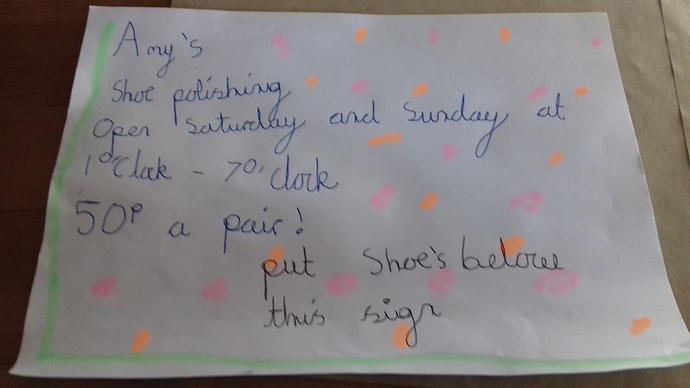 Amy's
Shoe polishing
Open saturday and sunday at
1 O'Clock - 7 O'clock
50P a pair!
put Shoe's below
this sign